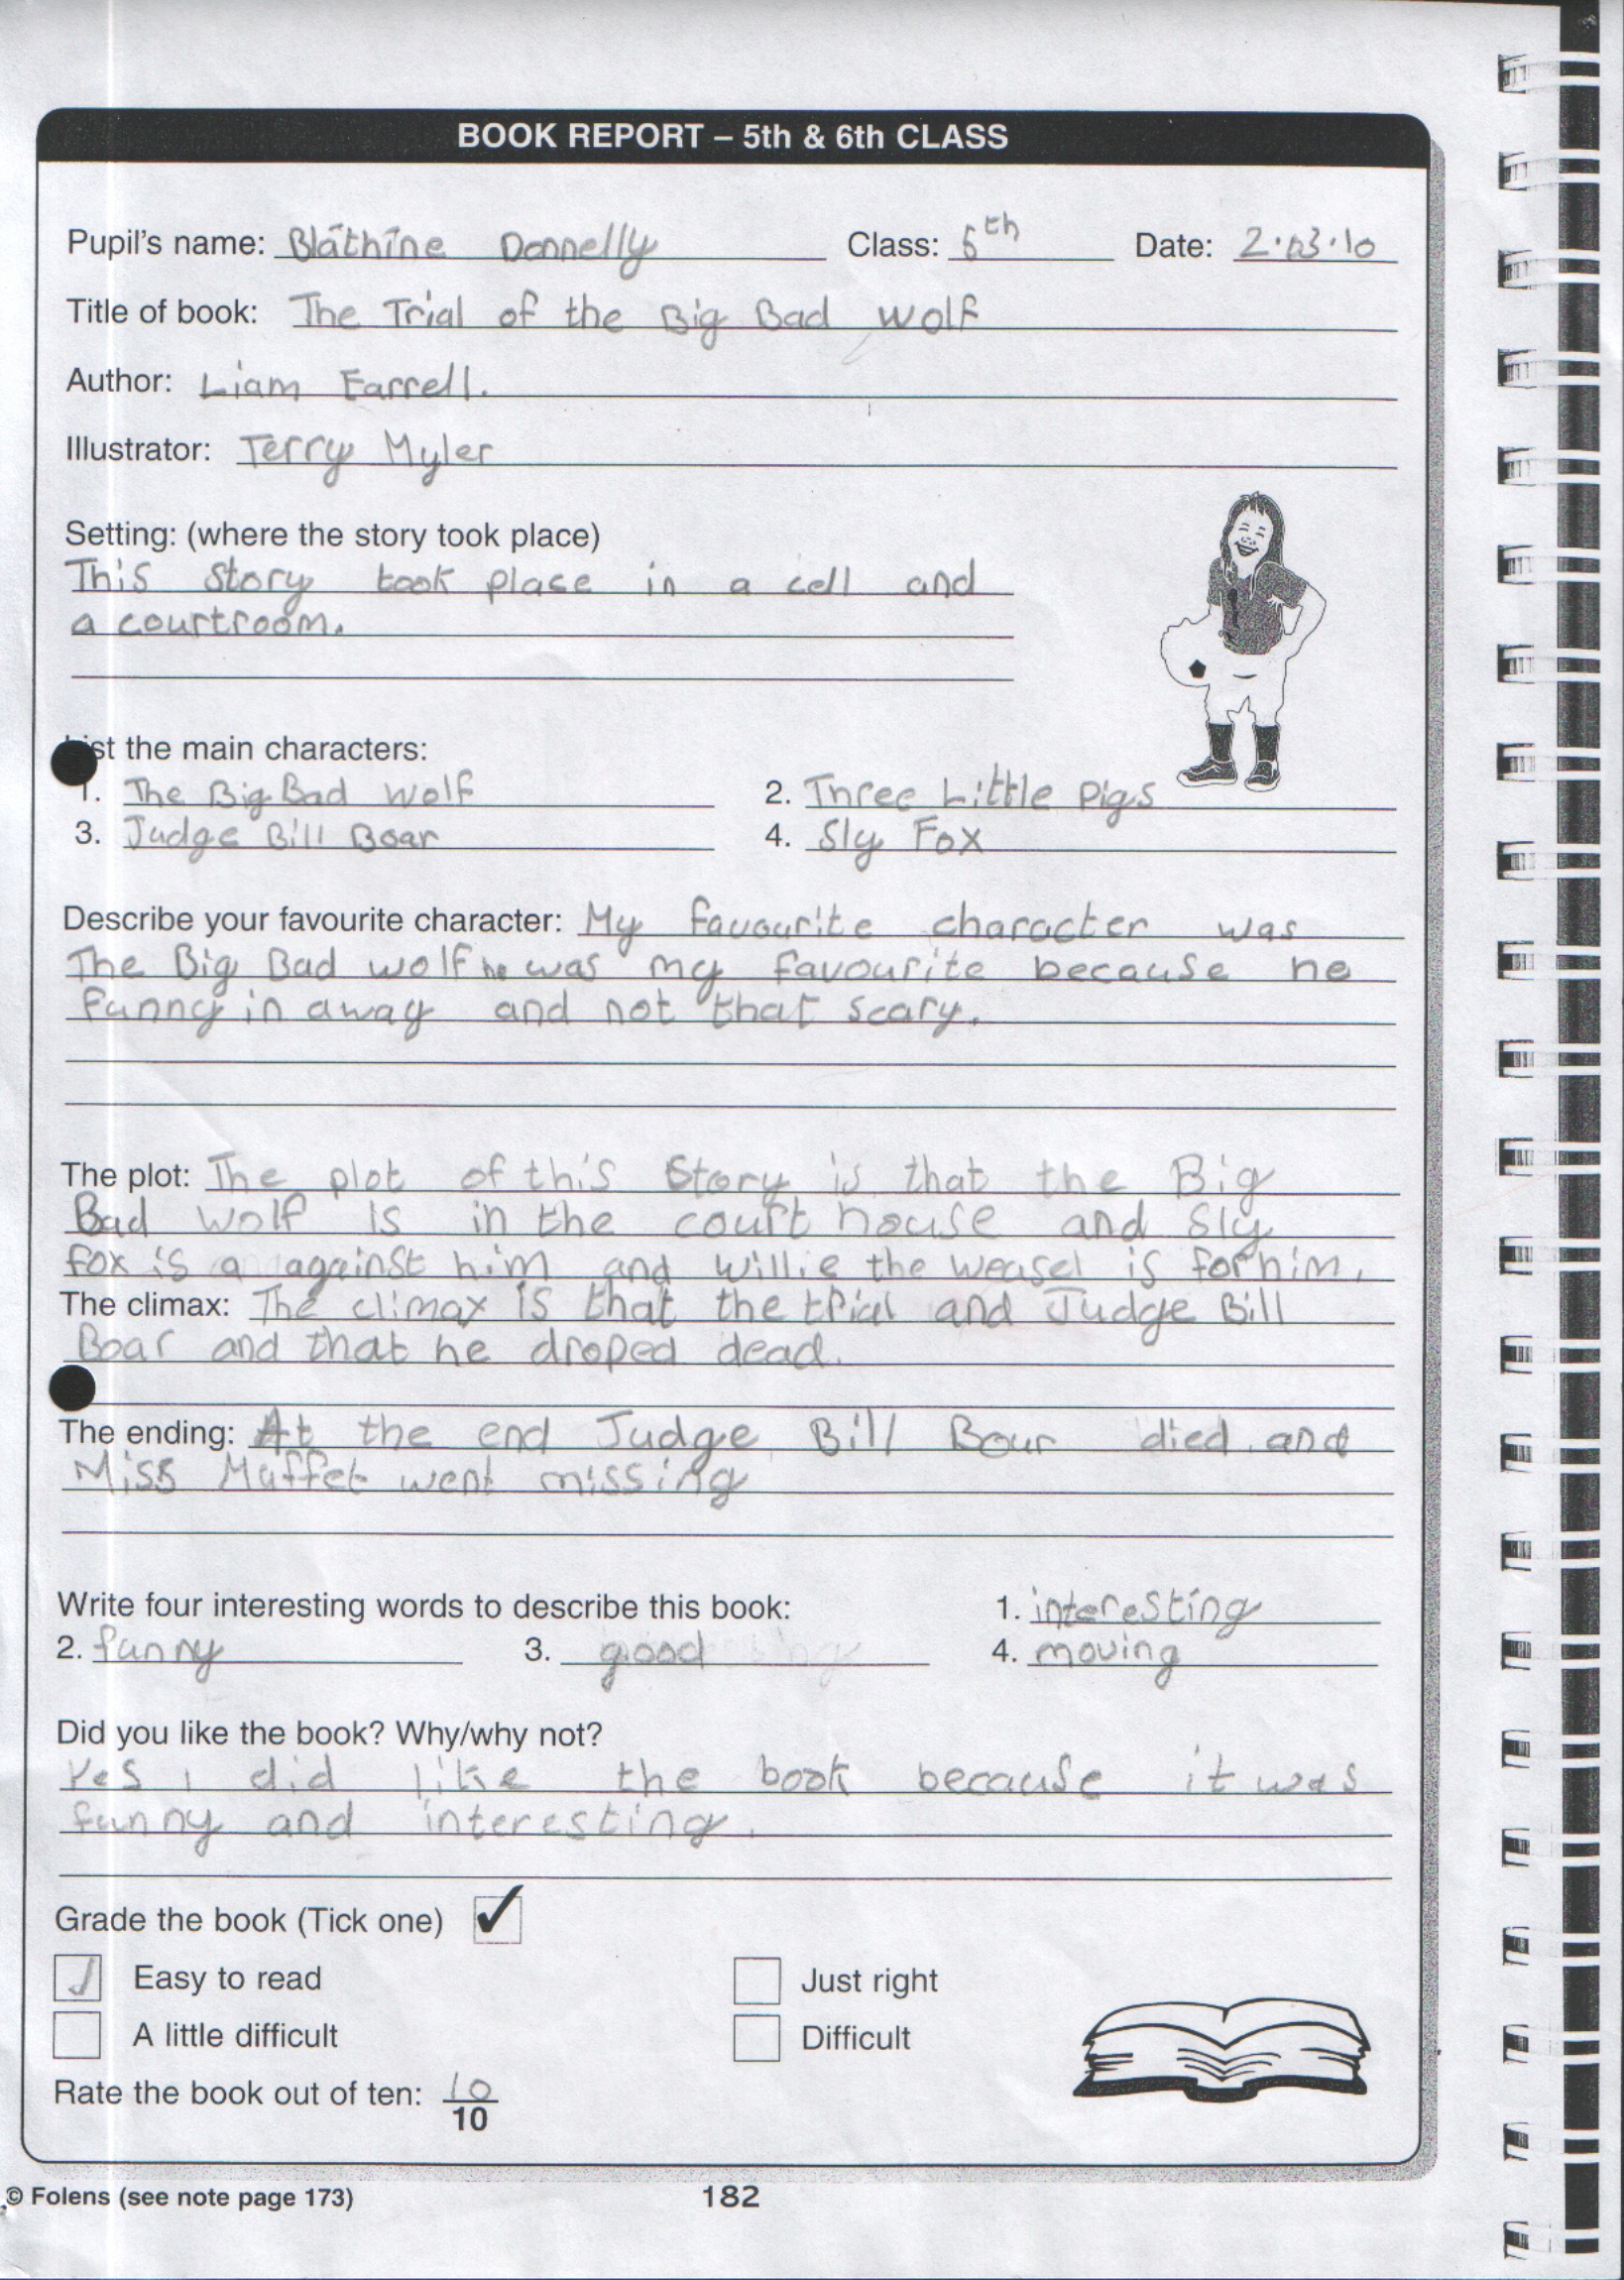 BOOK REPORT – 5th & 6th CLASS
Pupil's name: Bláthíne Donnelly Class: 5th Date: 2.03.10
Title of book: The Trial of the Big Bad Wolf
Author: Liam Farrell.
Illustrator: Terry Myler
Setting: (where the story took place)
This story took place in a cell and
a courtroom.
List the main characters:
1. The Big Bad Wolf 2. Three Little Pigs
3. Judge Bill Boar 4. Sly Fox
Describe your favourite character: My favourite character was
The Big Bad wolf he was my favourite because he
funny in away and not that scary.
The plot: The plot of this Story is that the Big
Bad wolf is in the court house and Sly
fox is a against him and Willie the weasel is for him.
The climax: The climax is that the trial and Judge Bill
Boar and that he droped dead.
The ending: At the end Judge Bill Bour died and
Miss Muffet went missing
Write four interesting words to describe this book: 1. interesting
2. funny 3. good 4. moving
Did you like the book? Why/why not?
Yes i did like the book because it was
funny and interesting.
Grade the book (Tick one) ✓
✓ Easy to read Just right
A little difficult Difficult
Rate the book out of ten: 10
10
© Folens (see note page 173) 182